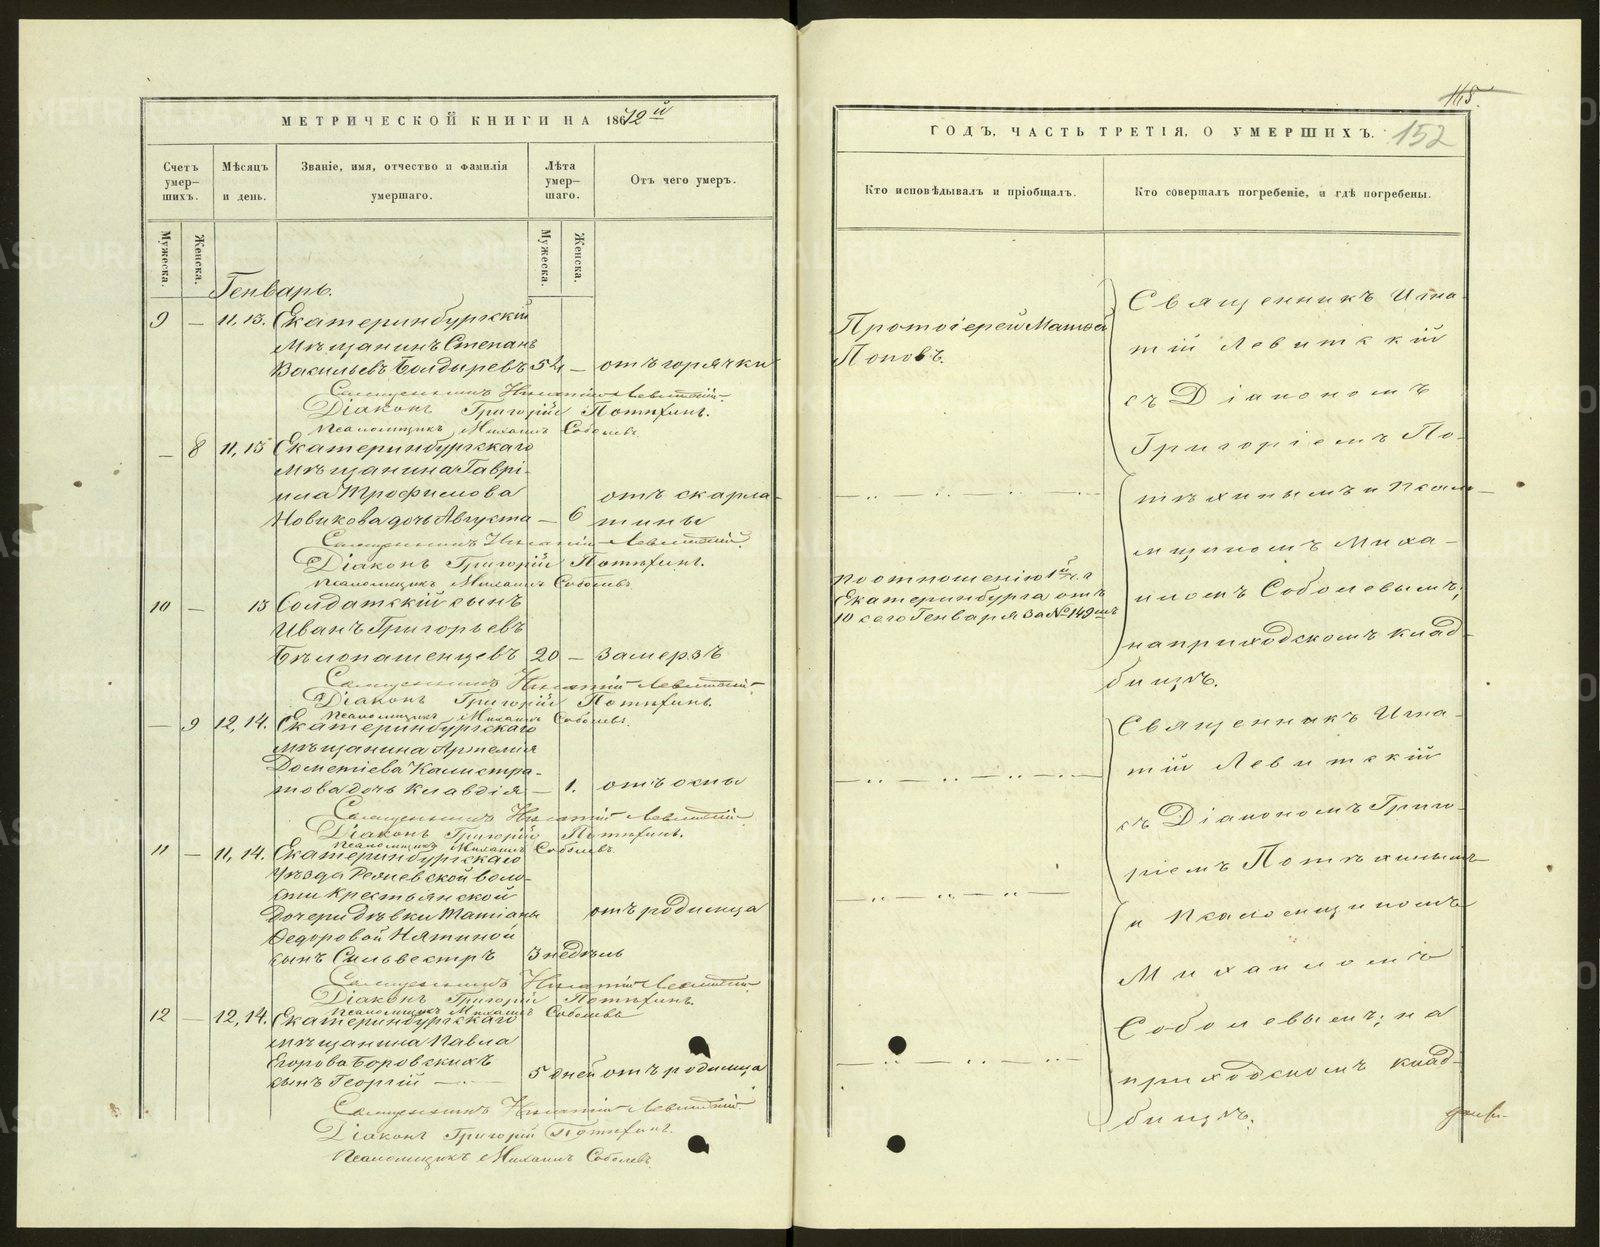 МЕТРИЧЕСКОЙ КНИГИ НА 1872й
Счетъ умер- шихъ.
Мѣсяцъ и день.
Званіе, имя, отчество и фамилія умершаго.
Лѣта умер- шаго.
Отъ чего умеръ.
Мужеска.
Женска.
Мужеска.
Женска.
Генварь.
9 — 11, 13. Екатеринбургскій
мѣщанинъ Степанъ
Васильевъ Болдыревъ 54 — отъ горячки
Священникъ Игнатій Левитскій.
Діаконъ Григорій Потѣхинъ.
Псаломщикъ Михаилъ Соболевъ.
— 8 11, 13 Екатеринбургскаго
мѣщанина Гаврі-
ила Трофимова отъ скарла-
Новикова дочь Августа — 6 тины
Священникъ Игнатій Левитскій.
Діаконъ Григорій Потѣхинъ.
Псаломщикъ Михаилъ Соболевъ.
10 — 13 Солдатскій сынъ
Иванъ Григорьевъ
Бѣлопашенцевъ 20 — замерзъ
Священникъ Игнатій Левитскій.
Діаконъ Григорій Потѣхинъ.
Псаломщикъ Михаилъ Соболевъ.
— 9 12, 14. Екатеринбургскаго
мѣщанина Артемія
Дометіева Калистра-
това дочь Клавдія — 1. отъ оспы
Священникъ Игнатій Левитскій.
Діаконъ Григорій Потѣхинъ.
Псаломщикъ Михаилъ Соболевъ.
11 — 11, 14. Екатеринбургскаго
уѣзда Режевской воло-
сти крестьянской
дочери дѣвки Татіаны отъ родимца
Ѳедоровой
сынъ Сильвестръ 3 недѣль
Священникъ Игнатій Левитскій
Діаконъ Григорій Потѣхинъ.
Псаломщикъ Михаилъ Соболевъ
12 — 12, 14. Екатеринбургскаго
мѣщанина Павла
Егорова Боровскихъ
сынъ Георгій — 5 дней отъ родимца
Священникъ Игнатій Левитскій.
Діаконъ Григорій Потѣхинъ.
Псаломщикъ Михаилъ Соболевъ.
145.
152
ГОДЪ, ЧАСТЬ ТРЕТІЯ, О УМЕРШИХЪ.
Кто исповѣдывалъ и пріобщалъ.
Кто совершалъ погребеніе, и гдѣ погребены.
Протоіерей Матѳей
Поповъ.
по отношенію 1й ч. г.
Екатеринбурга отъ
10 сего Генваря за № 149мъ
Священникъ Игна-
тій Левитскій
съ Діакономъ
Григоріемъ По-
тѣхинымъ и Псало-
мщикомъ Миха-
иломъ Соболевымъ;
на приходскомъ клад-
бищѣ.
Священникъ Игна-
тій Левитскій
съ Діакономъ Григо-
ріемъ Потѣхинымъ
и Псаломщикомъ
Михаиломъ
Соболевымъ; на
приходскомъ клад-
бищѣ.